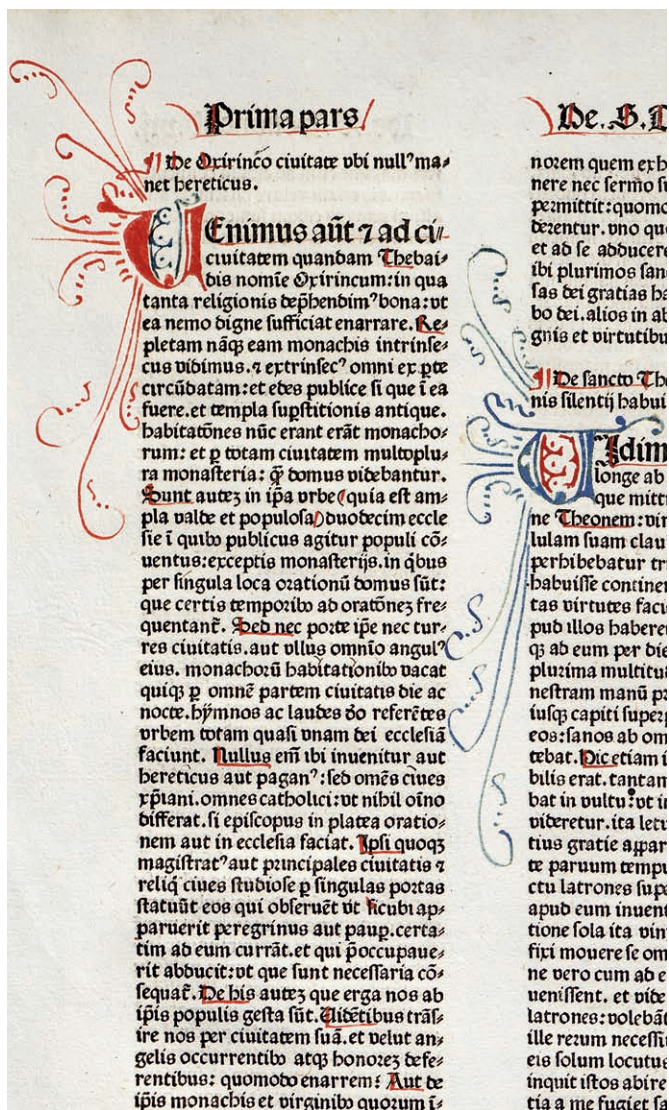 Prima pars
¶ De Oxirinco ciuitate vbi nullꝰ ma⸗
net hereticus.
VEnimus aūt ⁊ ad ci⸗
ciuitatem quandam Thebai⸗
dis nomīe Oxirincum: in qua
tanta religionis dep̄hendimꝰ bona: vt
ea nemo digne sufficiat enarrare. Re⸗
pletam nāqꝫ eam monachis intrinse⸗
cus vidimus. ⁊ extrinsecꝰ omni ex ꝑte
circūdatam: et edes publice si que ī ea
fuere. et templa suꝑstitionis antique.
habitatōnes nūc erant erāt monacho⸗
rum: et ꝑ totam ciuitatem multoplu⸗
ra monasteria: ꝙ̄ domus videbantur.
Sunt auteꝫ in ip̄a vrbe (quia est am⸗
pla valde et populosa) duodecim eccle
sie ī quibꝰ publicus agitur populi cō⸗
uentus: exceptis monasterijs. in q̇bus
per singula loca orationū domus sūt:
que certis temporibꝰ ad oratōneꝫ fre⸗
quentant᷑. Sed nec porte ip̄e nec tur⸗
res ciuitatis. aut vllus omnīo angulꝰ
eius. monachorū habitationibꝰ vacat
quiqꝫ ꝑ omnē partem ciuitatis die ac
nocte. hymnos ac laudes deo referētes
vrbem totam quasi vnam dei ecclesiā
faciunt. Nullus em̄ ibi inuenitur aut
hereticus aut paganꝰ: sed omēs ciues
xp̄iani. omnes catholici: vt nihil oīno
differat. si episcopus in platea oratio⸗
nem aut in ecclesia faciat. Ipsi quoqꝫ
magistratꝰ aut principales ciuitatis ⁊
reliq̇ ciues studiose ꝑ singulas portas
statuūt eos qui obseruēt vt sicubi ap⸗
paruerit peregrinus aut pauꝑ. certa⸗
tim ad eum currāt. et qui p̄occupaue⸗
rit adducit: vt que sunt necessaria cō⸗
sequat᷑. De his auteꝫ que erga nos ab
ip̄is populis gesta sūt. Uidētibus trās⸗
ire nos per ciuitatem suā. et velut an⸗
gelis occurrentibꝰ atqꝫ honoreꝫ defe⸗
rentibus: quomodo enarrem? Aut de
ip̄is monachis et virginibꝰ quorum ī⸗
De. S.
norem quem exh
nere nec sermo su
permittit: quomo
derentur. vno que
et ad se adducere
ibi plurimos san
sas dei gratias ha
bo dei. alios in ab
gnis et virtutibu
¶ De sancto The
nis silentij habui
UIdim
longe ab
que mitti
ne Theonem: vir
lulam suam clau
perhibebatur tri
habuisse continen
tas virtutes faci
pud illos haberet
qꝫ ad eum per die
plurima multitu
nestram manū pr
iusqꝫ capiti superp
eos: sanos ab om
tebat. Dic etiam i
bilis erat. tantam
bat in vultu: vt in
videretur. ita leti
tius gratie appar
te paruum tempu
ctu latrones supe
apud eum inueni
tione sola ita vin
fixi mouere se om
ne vero cum ad e
uenissent. et vide
latrones: volebāt
ille rerum necessi
eis solum locutus
inquit istos abire
tia a me fugiet sa